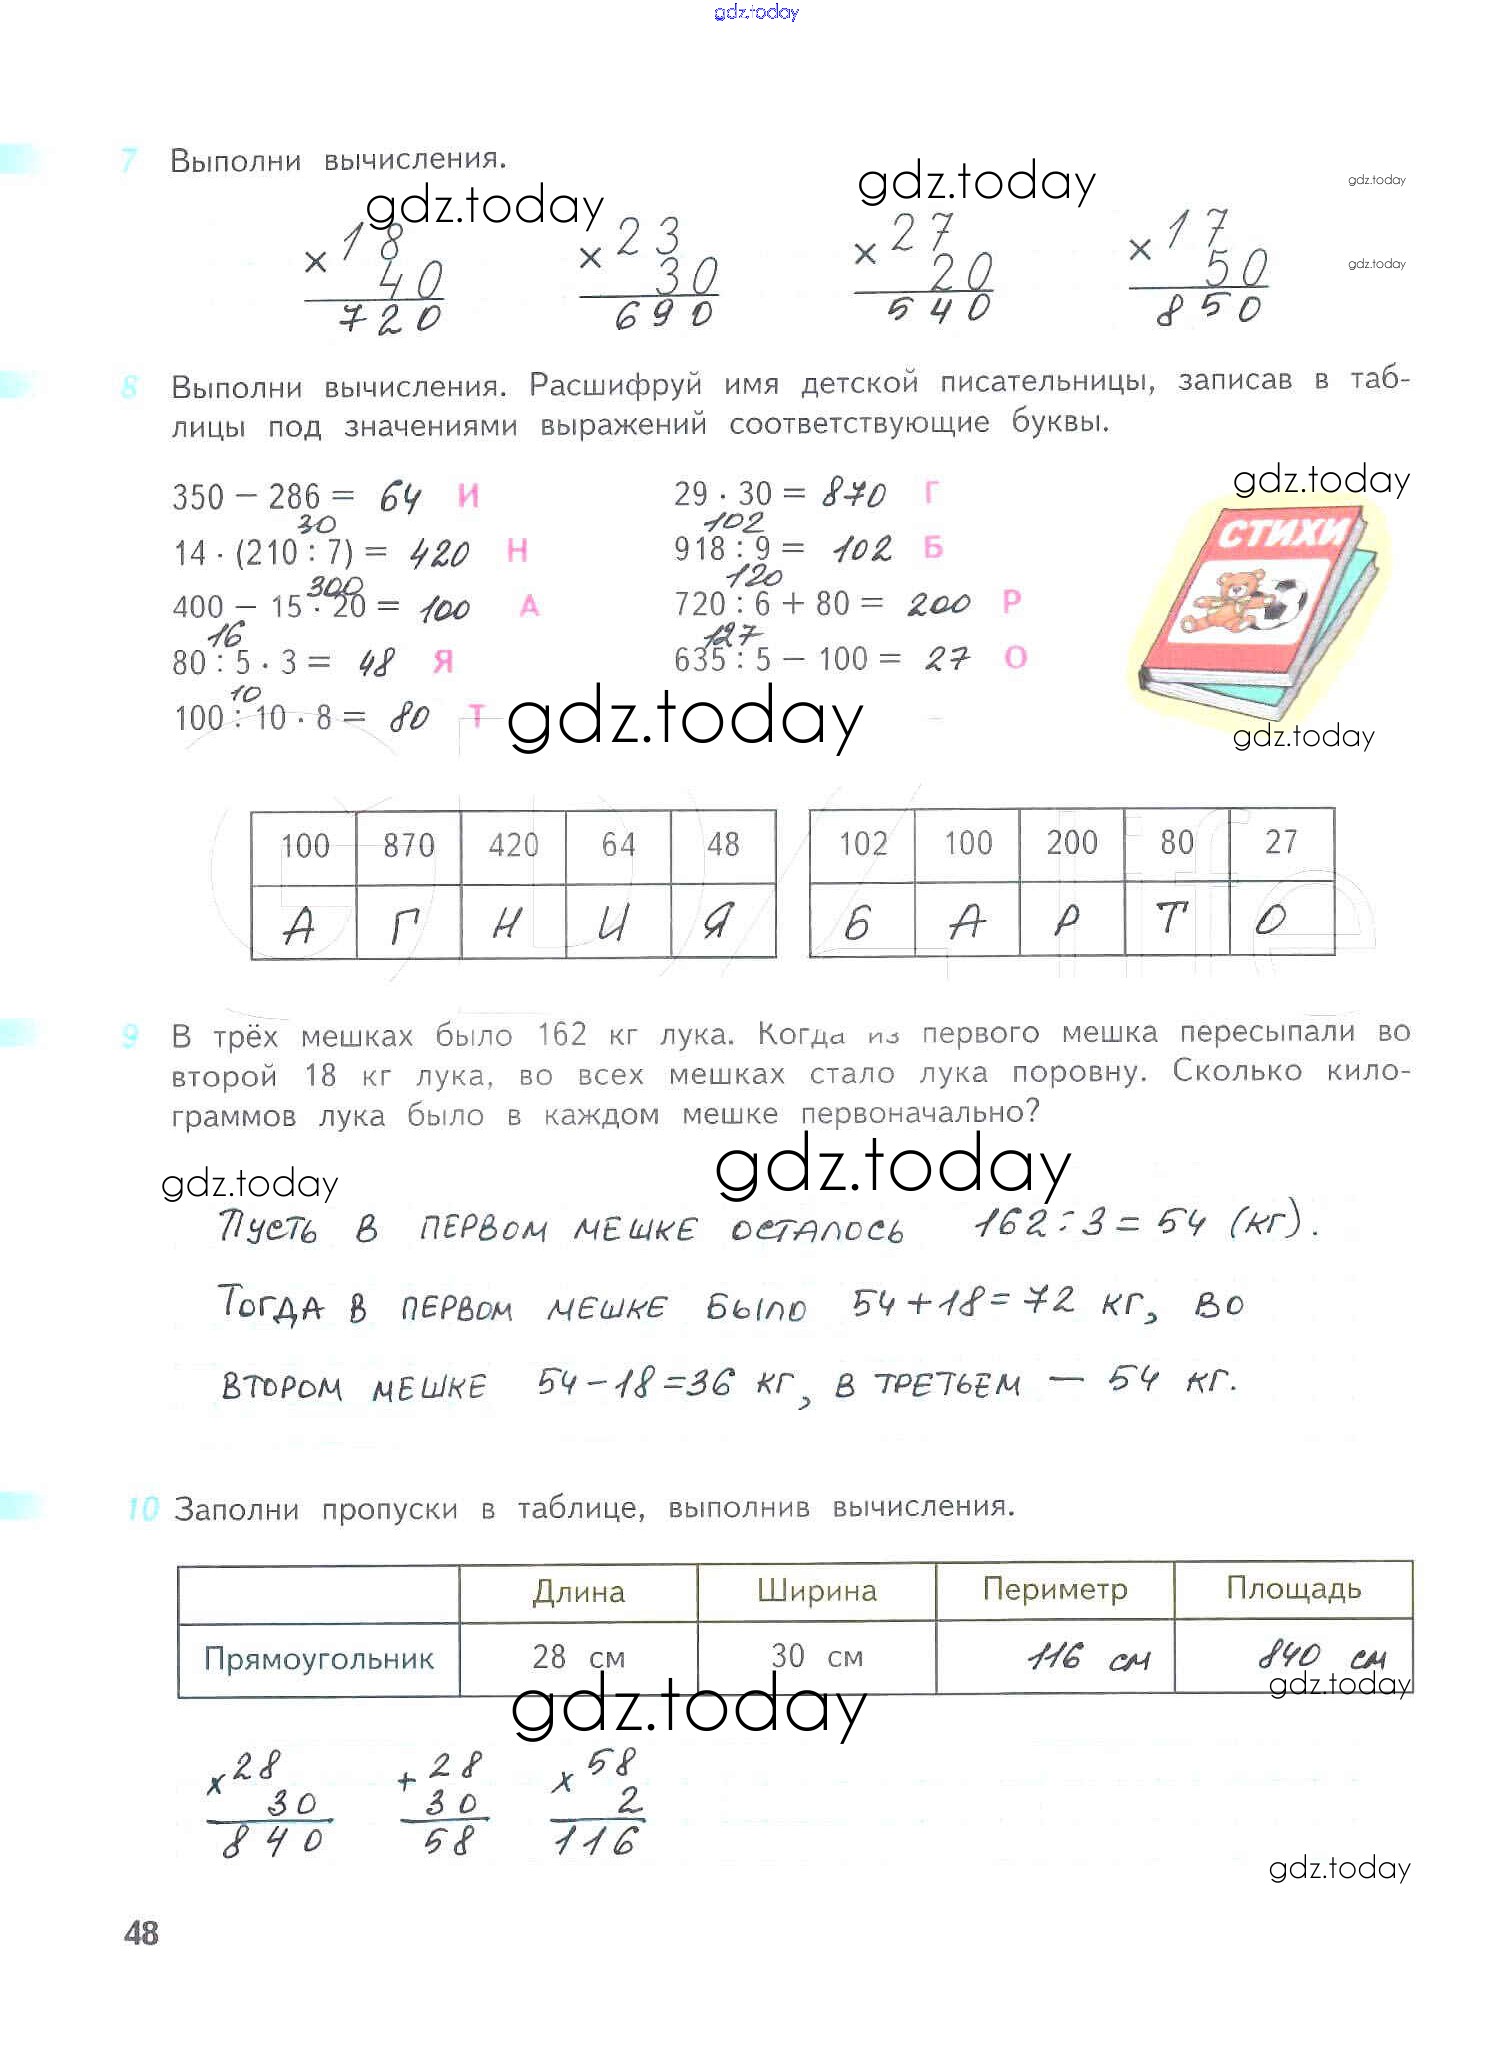 gdz.today
7 Выполни вычисления.
gdz.today gdz.today gdz.today
× 18 × 23 × 27 × 17
40 30 20 50 gdz.today
720 690 540 850
8 Выполни вычисления. Расшифруй имя детской писательницы, записав в таб-
лицы под значениями выражений соответствующие буквы.
350 − 286 = 64 И 29 · 30 = 870 Г gdz.today
30 102
14 · (210 : 7) = 420 Н 918 : 9 = 102 Б СТИХИ
300 120
400 − 15 · 20 = 100 А 720 : 6 + 80 = 200 Р
16 127
80 : 5 · 3 = 48 Я 635 : 5 − 100 = 27 О
10
100 : 10 · 8 = 80 Т gdz.today gdz.today
100 870 420 64 48 102 100 200 80 27
А Г Н И Я Б А Р Т О
9 В трёх мешках было 162 кг лука. Когда из первого мешка пересыпали во
второй 18 кг лука, во всех мешках стало лука поровну. Сколько кило-
граммов лука было в каждом мешке первоначально?
gdz.today gdz.today
Пусть в первом мешке осталось 162:3=54 (кг).
Тогда в первом мешке было 54+18=72 кг, во
втором мешке 54−18=36 кг, в третьем — 54 кг.
10 Заполни пропуски в таблице, выполнив вычисления.
Длина Ширина Периметр Площадь
Прямоугольник 28 см 30 см 116 см 840 см
gdz.today gdz.today
× 28 + 28 × 58
30 30 2
840 58 116
gdz.today
48